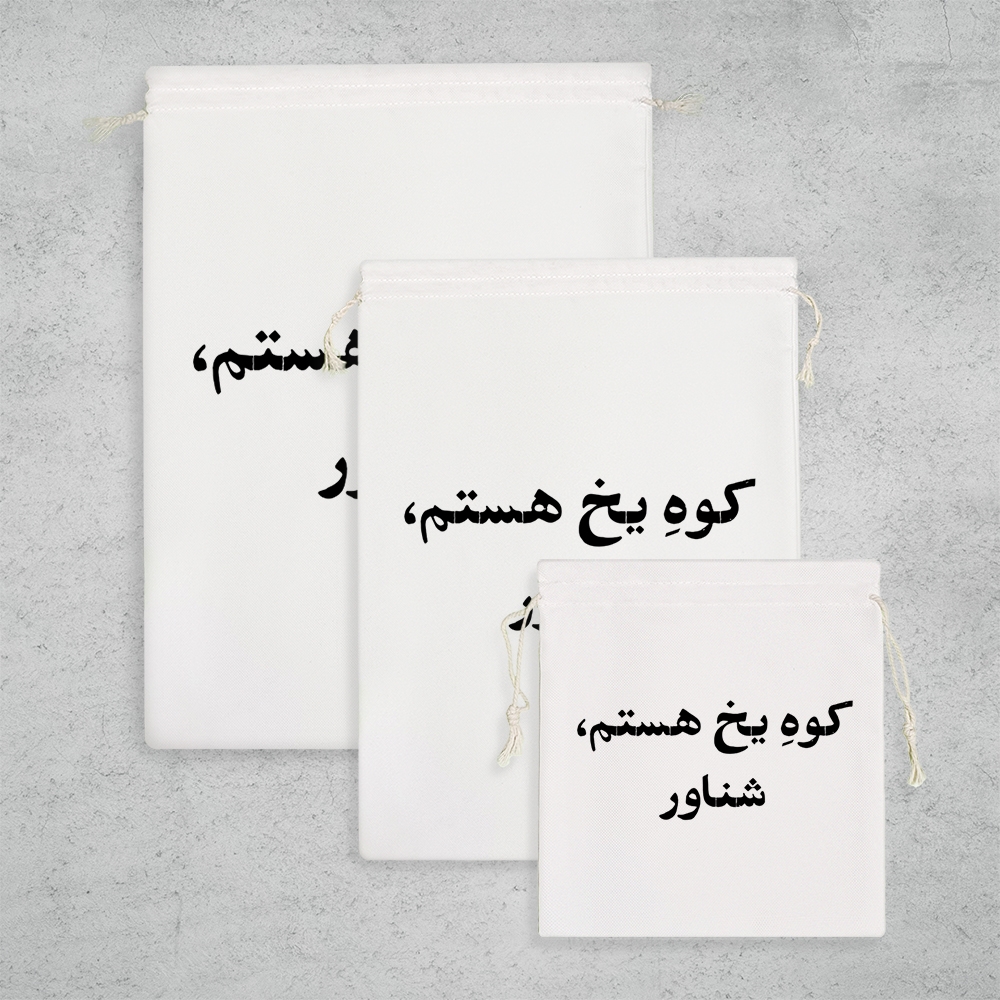 هستم،
کوهِ یخ هستم،
کوهِ یخ هستم،
شناور